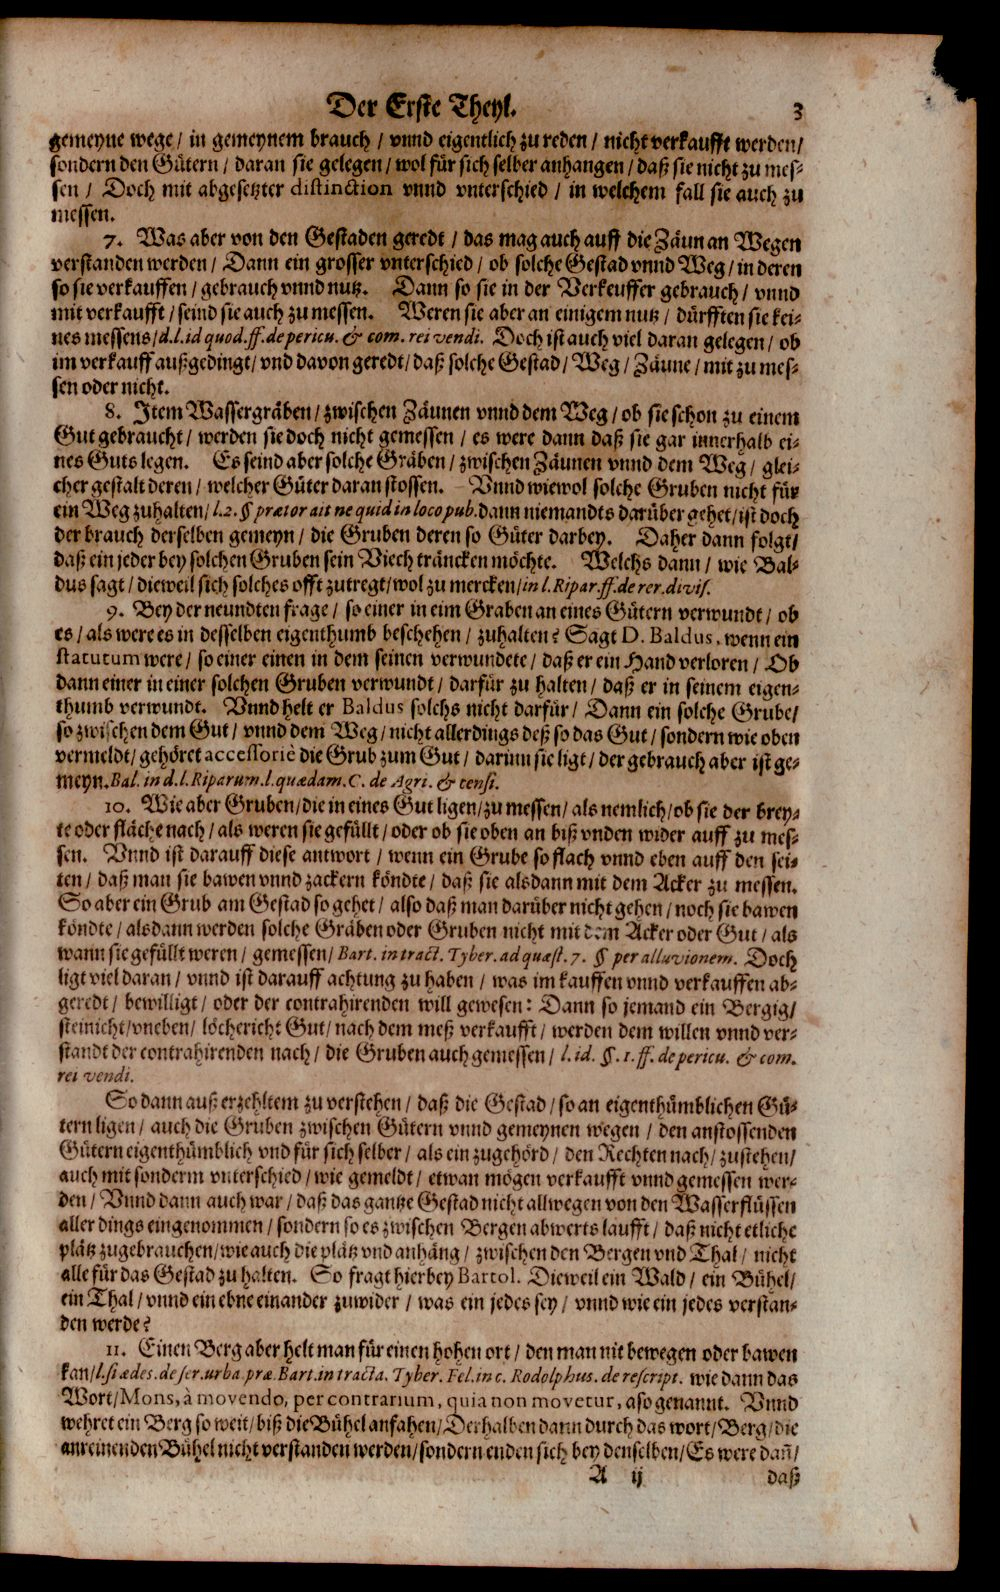 Der Erste Theyl. 3
gemeyne wege / in gemeynem brauch / vnnd eigentlich zu reden / nicht verkaufft werden /
sondern den Gütern / daran sie gelegen / wol für sich selber anhangen / daß sie nicht zu mes-
sen / Doch mit abgesetzter distinction vnnd vnterschied / in welchem fall sie auch zu
messen.
7. Was aber von den Gestaden geredt / das mag auch auff die Zäun an Wegen
verstanden werden / Dann ein grosser vnterschied / ob solche Gestad vnnd Weg / in deren
so sie verkauffen / gebrauch vnnd nutz. Dann so sie in der Verkeuffer gebrauch / vnnd
mit verkaufft / seind sie auch zu messen. Weren sie aber an einigem nutz / dürfften sie kei-
nes messens / d.l. id quod. ff. de pericu. & com. rei vendi. Doch ist auch viel daran gelegen / ob
im verkauff außgedingt / vnd davon geredt / daß solche Gestad / Weg / Zäune / mit zu mes-
sen oder nicht.
8. Item Wassergräben / zwischen Zäunen vnnd dem Weg / ob sie schon zu einem
Gut gebraucht / werden sie doch nicht gemessen / es were dann daß sie gar innerhalb ei-
nes Guts legen. Es seind aber solche Gräben / zwischen Zäunen vnnd dem Weg / glei-
cher gestalt deren / welcher Güter daran stossen. Vnnd wiewol solche Gruben nicht für
ein Weg zuhalten / l.2. § prætor ait ne quid in loco pub. dann niemandts darüber gehet / ist doch
der brauch derselben gemeyn / die Gruben deren so Güter darbey. Daher dann folgt /
daß ein jeder bey solchen Gruben sein Viech träncken möchte. Welchs dann / wie Bal-
dus sagt / dieweil sich solches offt zutregt / wol zu mercken / in l. Ripar. ff. de rer. divis.
9. Bey der neundten frage / so einer in eim Graben an eines Gütern verwundt / ob
es / als were es in desselben eigenthumb beschehen / zuhalten? Sagt D. Baldus, wenn ein
statutum were / so einer einen in dem seinen verwundete / daß er ein Hand verloren / Ob
dann einer in einer solchen Gruben verwundt / darfür zu halten / daß er in seinem eigen-
thumb verwundt. Vnnd helt er Baldus solchs nicht darfür / Dann ein solche Grube /
so zwischen dem Gut / vnnd dem Weg / nicht allerdings deß so das Gut / sondern wie oben
vermeldt / gehöret accessoriè die Grub zum Gut / darinn sie ligt / der gebrauch aber ist ge-
meyn. Bal. in d.l. Riparum. l. quædam. C. de Agri. & censi.
10. Wie aber Gruben / die in eines Gut ligen / zu messen / als nemlich / ob sie der brey-
te oder fläche nach / als weren sie gefüllt / oder ob sie oben an biß vnden wider auff zu mes-
sen. Vnnd ist darauff diese antwort / wenn ein Grube so flach vnnd eben auff den sei-
ten / daß man sie bawen vnnd zackern köndte / daß sie alsdann mit dem Acker zu messen.
So aber ein Grub am Gestad so gehet / also daß man darüber nicht gehen / noch sie bawen
köndte / alsdann werden solche Gräben oder Gruben nicht mit dem Acker oder Gut / als
wann sie gefüllt weren / gemessen / Bart. in tract. Tyber. ad quæst. 7. § per alluvionem. Doch
ligt viel daran / vnnd ist darauff achtung zu haben / was im kauffen vnnd verkauffen ab-
geredt / bewilligt / oder der contrahirenden will gewesen: Dann so jemand ein Bergig /
steinicht / vneben / löchericht Gut / nach dem meß verkaufft / werden dem willen vnnd ver-
standt der contrahirenden nach / die Gruben auch gemessen / l. id. §. 1. ff. de pericu. & com.
rei vendi.
So dann auß erzehltem zu verstehen / daß die Gestad / so an eigenthümblichen Gü-
tern ligen / auch die Gruben zwischen Gütern vnnd gemeynen wegen / den anstossenden
Gütern eigenthümblich vnd für sich selber / als ein zugehörd / den Rechten nach / zustehen /
auch mit sonderm vnterschied / wie gemeldt / etwan mögen verkaufft vnnd gemessen wer-
den / Vnnd dann auch war / daß das gantze Gestad nicht allwegen von den Wasserflüssen
aller dings eingenommen / sondern so es zwischen Bergen abwerts laufft / daß nicht etliche
plätz zugebrauchen / wie auch die plätz vnd anhäng / zwischen den Bergen vnd Thal / nicht
alle für das Gestad zu halten. So fragt hierbey Bartol. Dieweil ein Wald / ein Bühel /
ein Thal / vnnd ein ebne einander zuwider / was ein jedes sey / vnnd wie ein jedes verstan-
den werde?
11. Einen Berg aber helt man für einen hohen ort / den man nit bewegen oder bawen
kan / l. si ædes. de ser. urba. præ. Bart. in tracta. Tyber. Fel. in c. Rodolphus. de rescript. wie dann das
Wort / Mons, à movendo, per contrarium, quia non movetur, aso genannt. Vnnd
wehret ein Berg so weit / biß die Bühel anfahen / Derhalben dann durch das wort / Berg / die
anreinenden Bühel nicht verstanden werden / sondern enden sich bey denselben / Es were dañ /
A ij daß